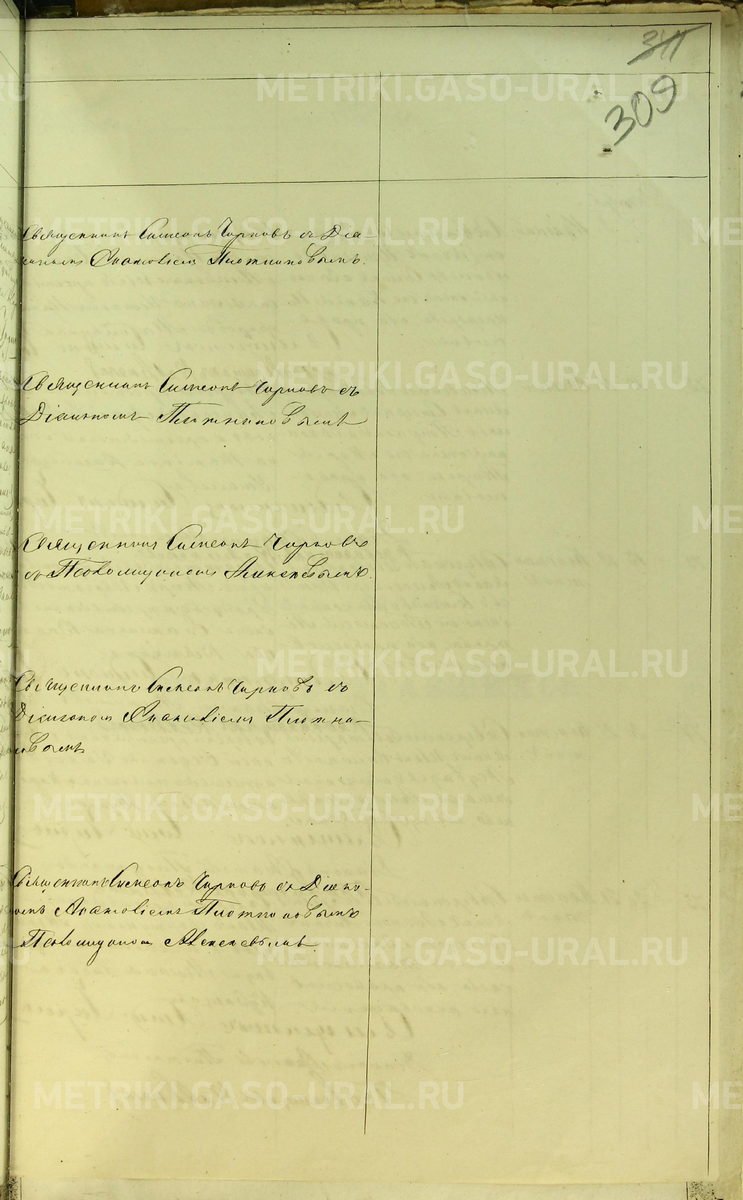 311
309
METRIKI.GASO-URAL.RU
Священникъ Симеонъ Чирковъ съ Діа-
кономъ Анатоліемъ Плотниковымъ.
Священникъ Симеонъ Чирковъ съ
Діакономъ Плотниковымъ
METRIKI.GASO-URAL.RU
Священникъ Симеонъ Чирковъ
съ Псаломщикомъ Алексѣевымъ.
METRIKI.GASO-URAL.RU
Священникъ Симеонъ Чирковъ со
Діакономъ Анатоліемъ Плотни-
ковымъ
METRIKI.GASO-URAL.RU
Священникъ Симеонъ Чирковъ съ Діако-
номъ Анатоліемъ Плотниковымъ
Псаломщикомъ Алексѣевымъ.
METRIKI.GASO-URAL.RU
METRIKI.GASO-URAL.RU